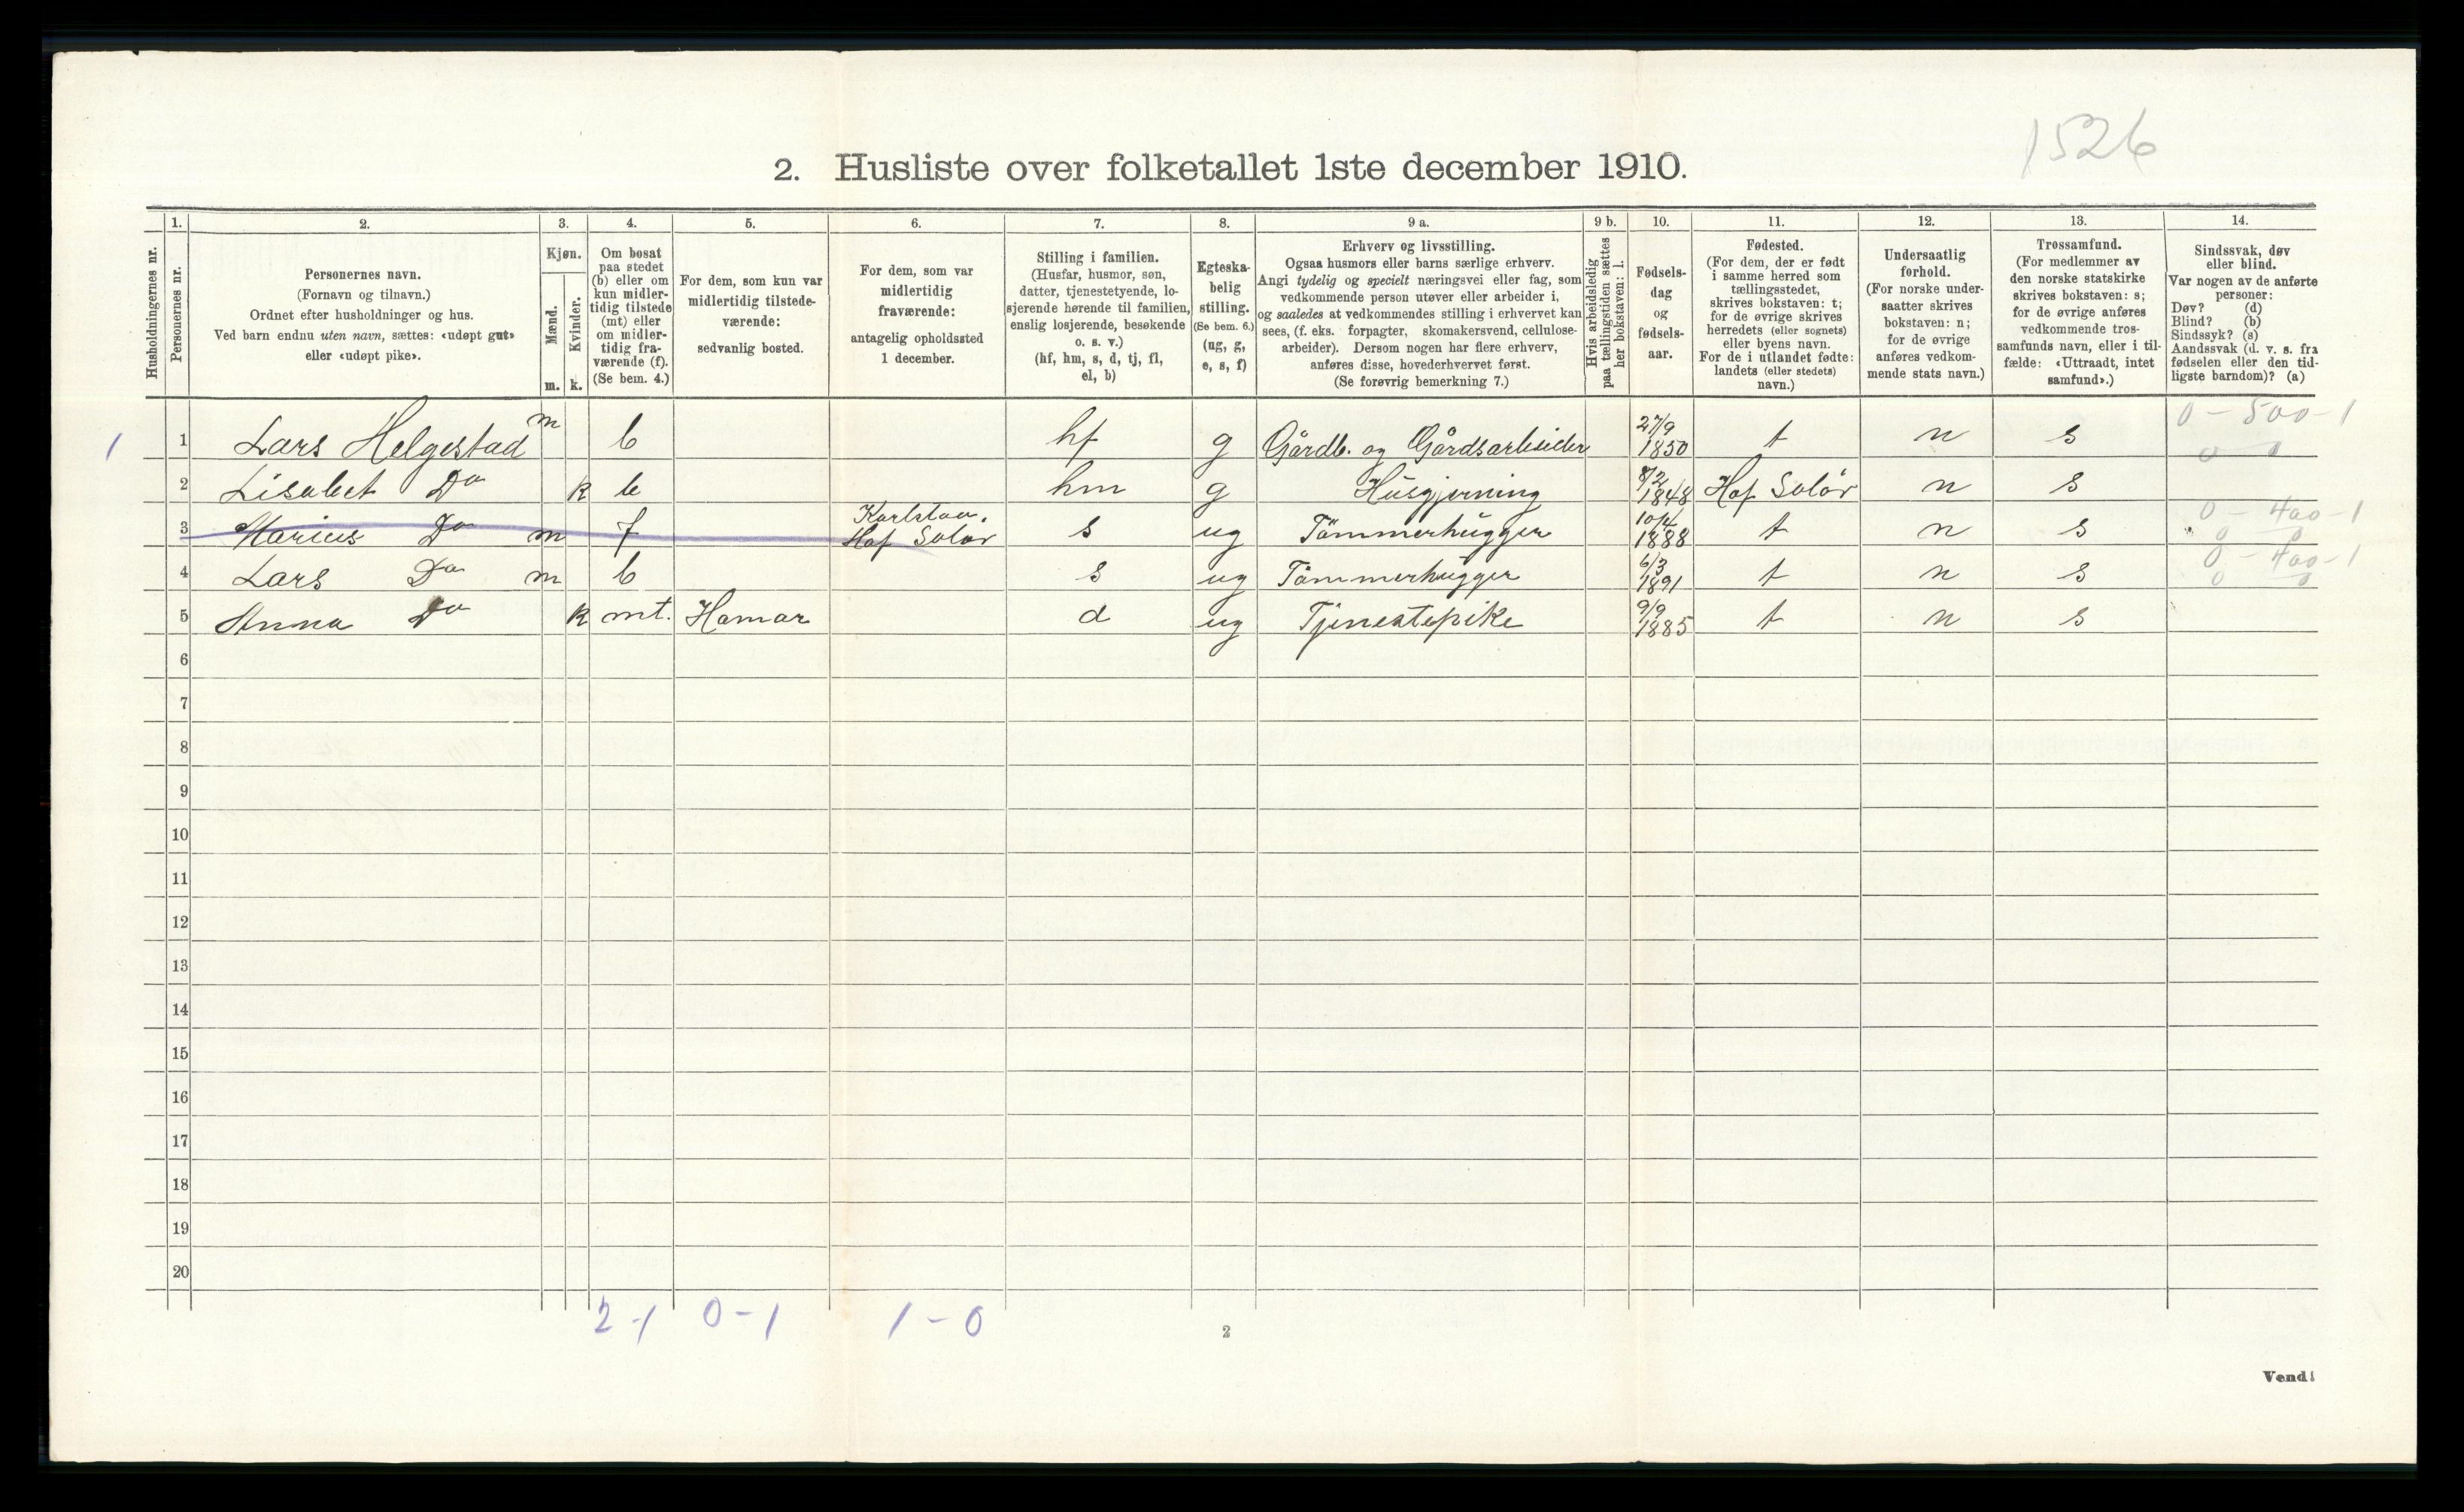 1526
2. Husliste over folketallet 1ste december 1910.
Husholdningernes nr.
1.
Personernes nr.
2.
Personernes navn.
(Fornavn og tilnavn.)
Ordnet efter husholdninger og hus.
Ved barn endnu uten navn, sættes: «udøpt gut»
eller «udøpt pike».
3.
Kjøn.
Mænd.
m.
Kvinder.
k.
4.
Om bosat
paa stedet
(b) eller om
kun midler-
tidig tilstede
(mt) eller
om midler-
tidig fra-
værende (f).
(Se bem. 4.)
5.
For dem, som kun var
midlertidig tilstede-
værende:
sedvanlig bosted.
6.
For dem, som var
midlertidig
fraværende:
antagelig opholdssted
1 december.
7.
Stilling i familien.
(Husfar, husmor, søn,
datter, tjenestetyende, lo-
sjerende hørende til familien,
enslig losjerende, besøkende
o. s. v.)
(hf, hm, s, d, tj, fl,
el, b)
8.
Egteska-
belig
stilling.
(Se bem. 6.)
(ug, g,
e, s, f)
9 a.
Erhverv og livsstilling.
Ogsaa husmors eller barns særlige erhverv.
Angi tydelig og specielt næringsvei eller fag, som
vedkommende person utøver eller arbeider i,
og saaledes at vedkommendes stilling i erhvervet kan
sees, (f. eks. forpagter, skomakersvend, cellulose-
arbeider). Dersom nogen har flere erhverv,
anføres disse, hovederhvervet først.
(Se forøvrig bemerkning 7.)
9 b.
Hvis arbeidsledig
paa tællingstiden sættes
her bokstaven: l.
10.
Fødsels-
dag
og
fødsels-
aar.
11.
Fødested.
(For dem, der er født
i samme herred som
tællingsstedet,
skrives bokstaven: t;
for de øvrige skrives
herredets (eller sognets)
eller byens navn.
For de i utlandet fødte:
landets (eller stedets)
navn.)
12.
Undersaatlig
forhold.
(For norske under-
saatter skrives
bokstaven: n;
for de øvrige
anføres vedkom-
mende stats navn.)
13.
Trossamfund.
(For medlemmer av
den norske statskirke
skrives bokstaven: s;
for de øvrige anføres
vedkommende tros-
samfunds navn, eller i til-
fælde: «Uttraadt, intet
samfund».)
14.
Sindssvak, døv
eller blind.
Var nogen av de anførte
personer:
Døv? (d)
Blind? (b)
Sindssyk? (s)
Aandssvak (d. v. s. fra
fødselen eller den tid-
ligste barndom)? (a)
1 1 Lars Helgestad m b hf g Gårdb. og Gårdsarbeider 27/9 1850 t n s 0 - 500 - 1
0 0
2 Lisabet Do k b hm g Husgjerning 8/2 1848 Hof Solör n s
3 Marius Do m f Karlstad. Hof Solör s ug Tömmerhugger 10/4 1888 t n s 0 - 400 - 1
0 0
4 Lars Do m b s ug Tömmerhugger 6/3 1891 t n s 0 - 400 - 1
0 0
5 Anna Do k mt. Hamar d ug Tjenestepike 9/9 1885 t n s
6
7
8
9
10
11
12
13
14
15
16
17
18
19
20
2 - 1 0 - 1 1 - 0
2
Vend!